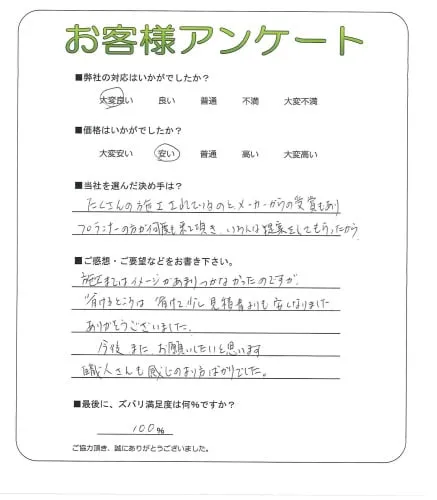 お客様アンケート
■弊社の対応はいかがでしたか?
大変良い 良い 普通 不満 大変不満
■価格はいかがでしたか?
大変安い 安い 普通 高い 大変高い
■当社を選んだ決め手は?
たくさんの施工をされているのと、メーカーからの受賞もあり
プランナーの方が何度も来て頂き、いろんな提案をしてもらったから
■ご感想・ご要望などをお書き下さい。
施工まではイメージがあまりつかなかったのですが、
省けるところは省けて少し見積書よりも安くなりました
ありがとうございました。
今後、また、お願いしたいと思います
職人さんも感じのより方ばかりでした。
■最後に、ズバリ満足度は何%ですか?
100%
ご協力頂き、誠にありがとうございました。